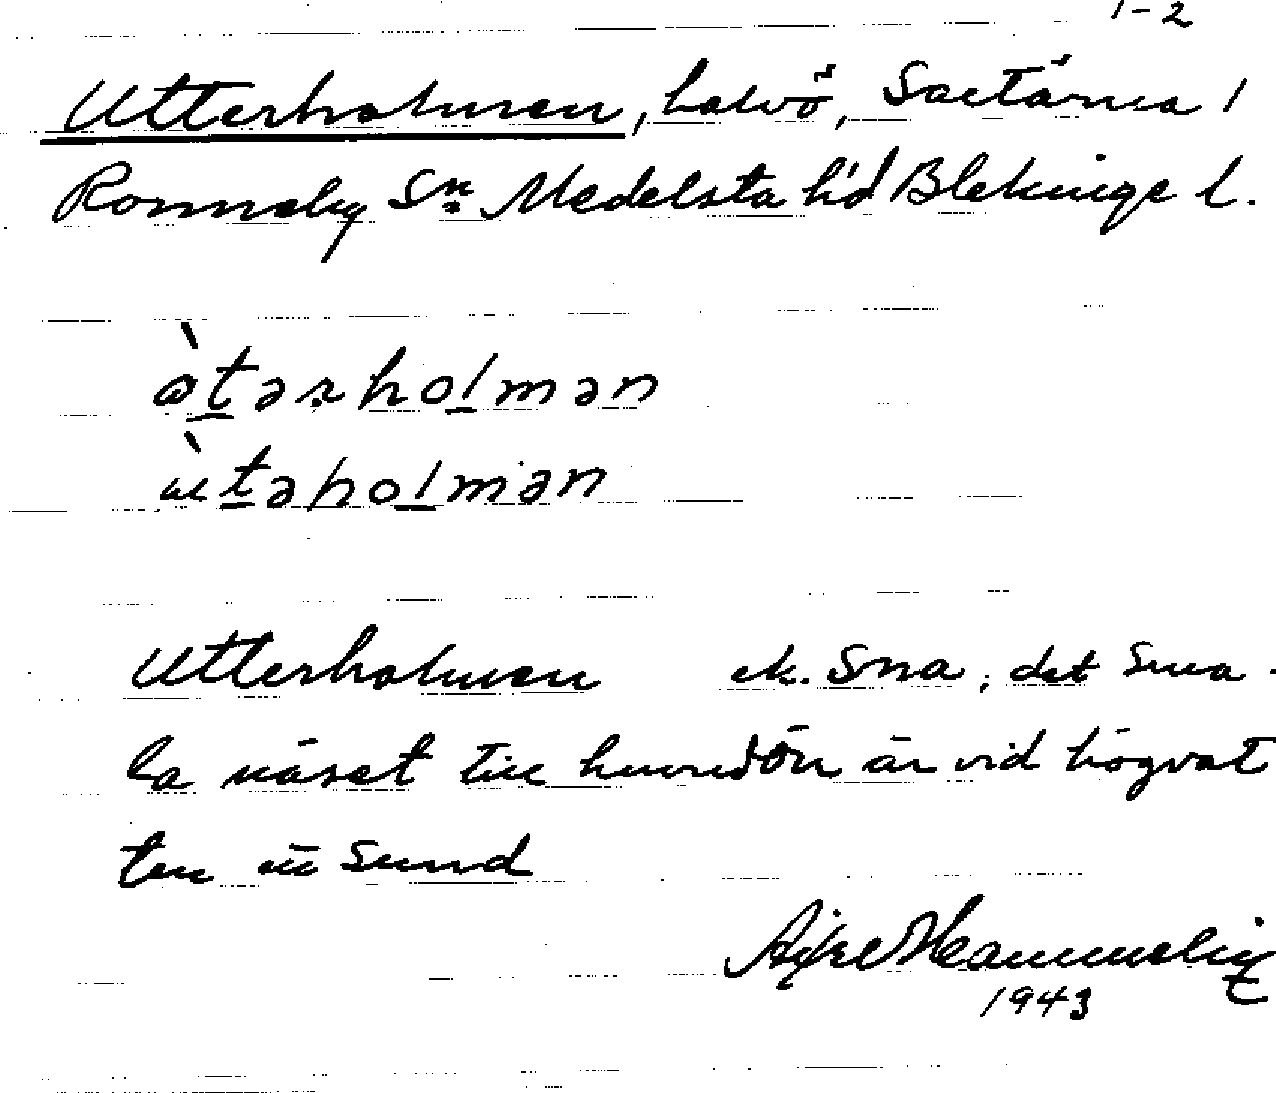 1-2
Utterholmen, halvö, Saxtärna 1
Ronneby Sn Medelsta hd Blekinge l.
ə̀tərholmən
ùtəholmən
Utterholmen ek. Sna, det sma-
la näset till huvudön är vid högvat
ten ett sund
1943